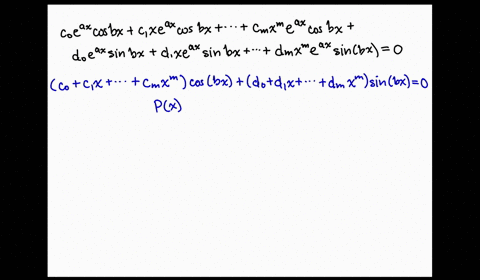 c₀eᵃˣcosbx + c₁xeᵃˣcosbx + ⋯ + cₘxᵐeᵃˣcosbx +
d₀eᵃˣsinbx + d₁xeᵃˣsinbx + ⋯ + dₘxᵐeᵃˣsin(bx) = 0
(c₀ + c₁x + ⋯ + cₘxᵐ)cos(bx) + (d₀ + d₁x + ⋯ + dₘxᵐ)sin(bx) = 0
P(x)